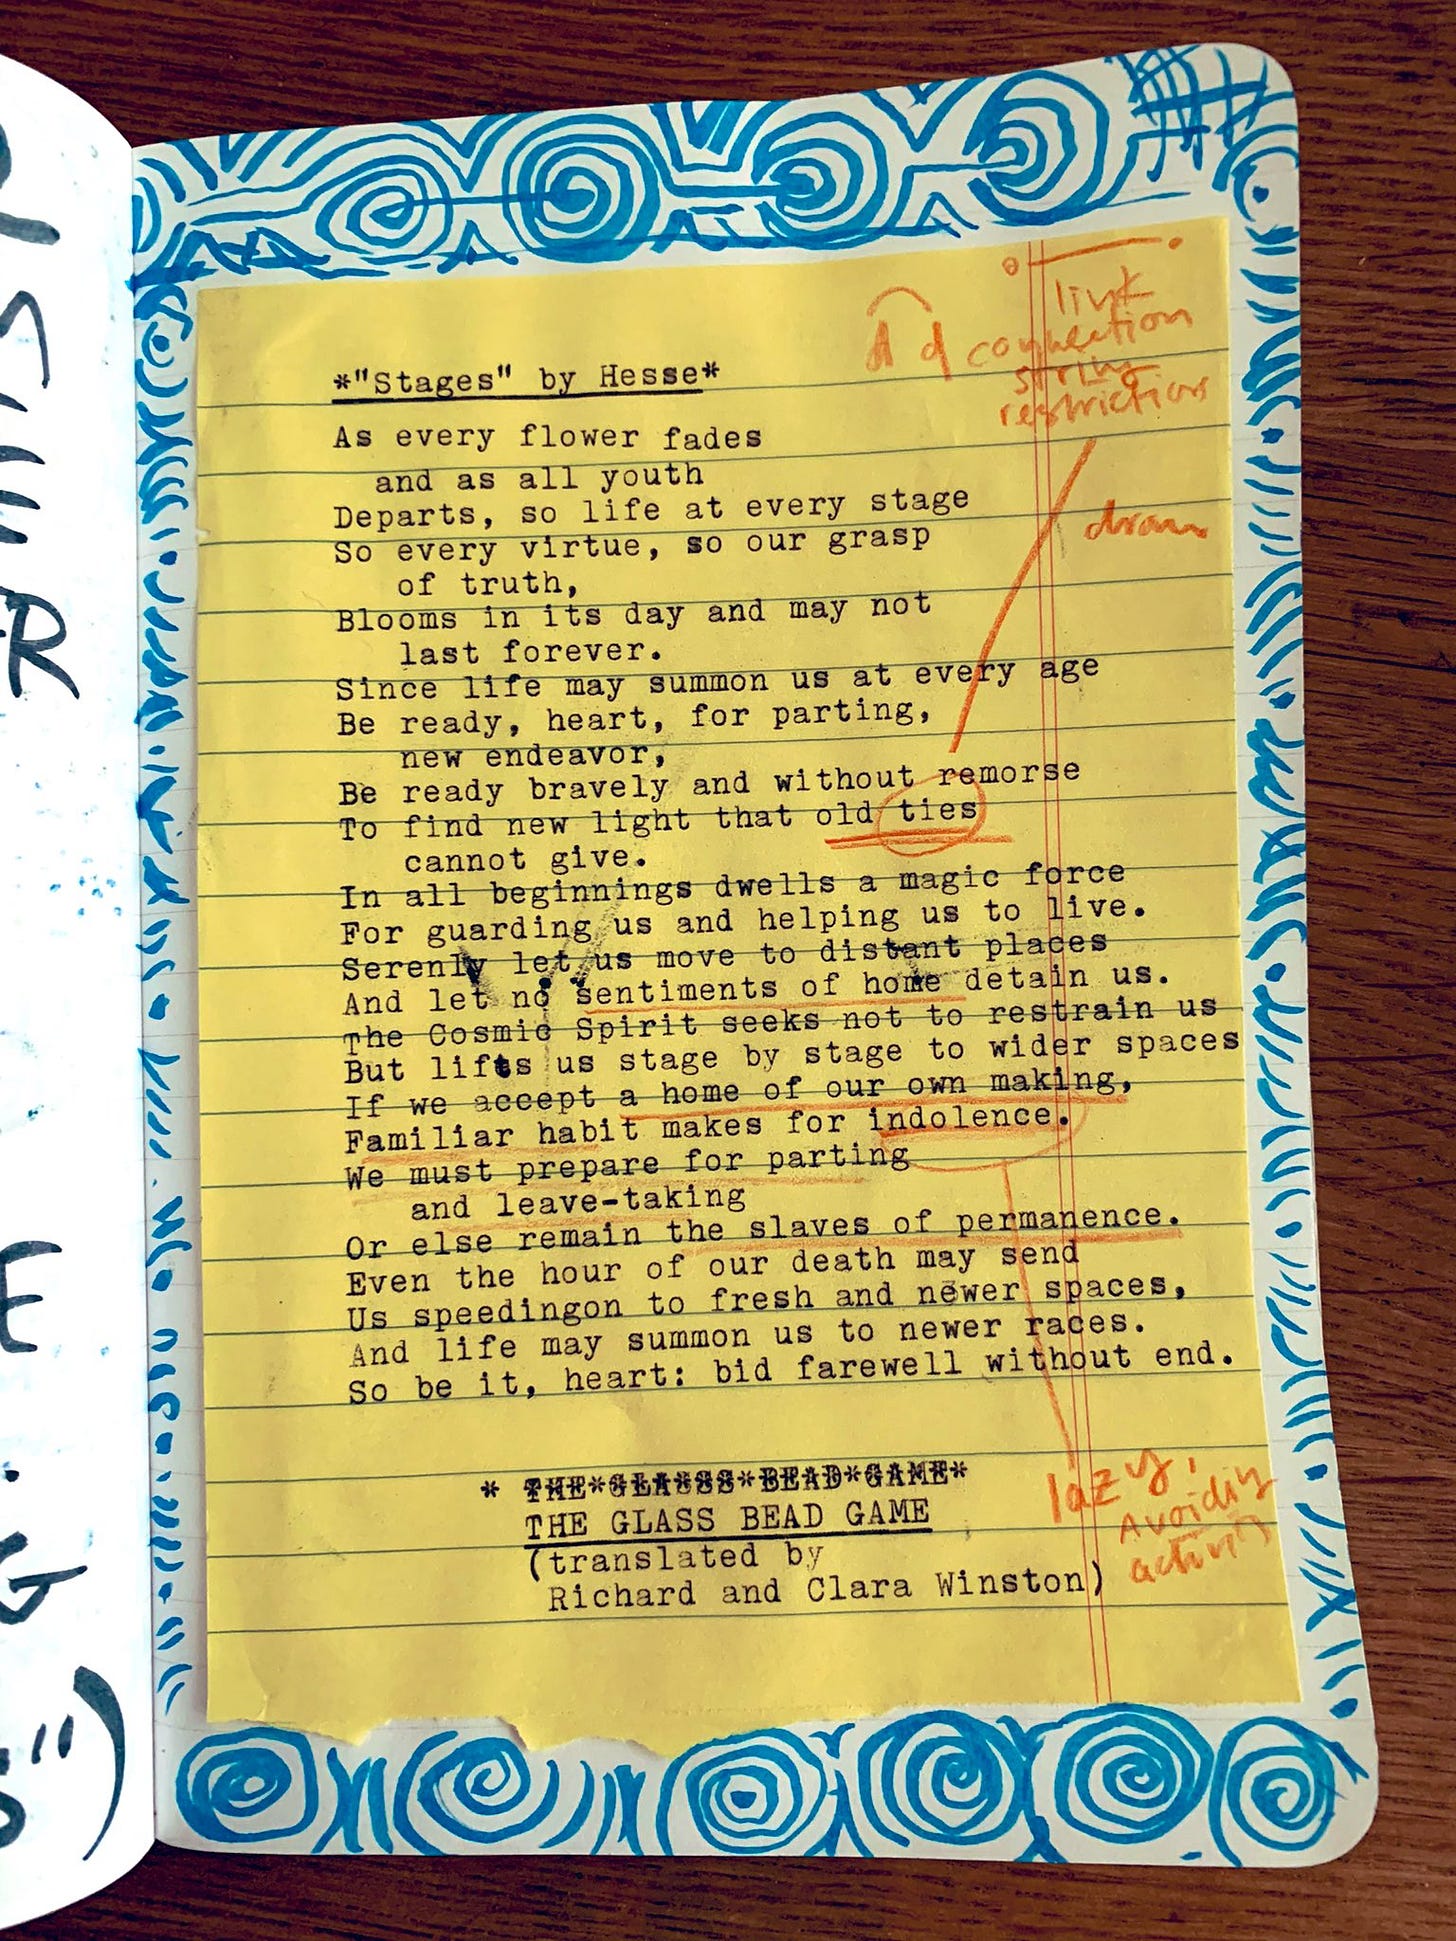 link
connection
string
restrictions
*"Stages" by Hesse*
As every flower fades
and as all youth
Departs, so life at every stage
So every virtue, so our grasp
of truth,
Blooms in its day and may not
last forever.
Since life may summon us at every age
Be ready, heart, for parting,
new endeavor,
Be ready bravely and without remorse
To find new light that old ties
cannot give.
In all beginnings dwells a magic force
For guarding us and helping us to live.
Serenly let us move to distant places
And let no sentiments of home detain us.
The Cosmic Spirit seeks not to restrain us
But lifts us stage by stage to wider spaces
If we accept a home of our own making,
Familiar habit makes for indolence.
We must prepare for parting
and leave-taking
Or else remain the slaves of permanence.
Even the hour of our death may send
Us speedingon to fresh and newer spaces,
And life may summon us to newer races.
So be it, heart: bid farewell without end.
* THE*GLASS*BEAD*GAME*
THE GLASS BEAD GAME
(translated by
Richard and Clara Winston)
lazy,
Avoiding
activity